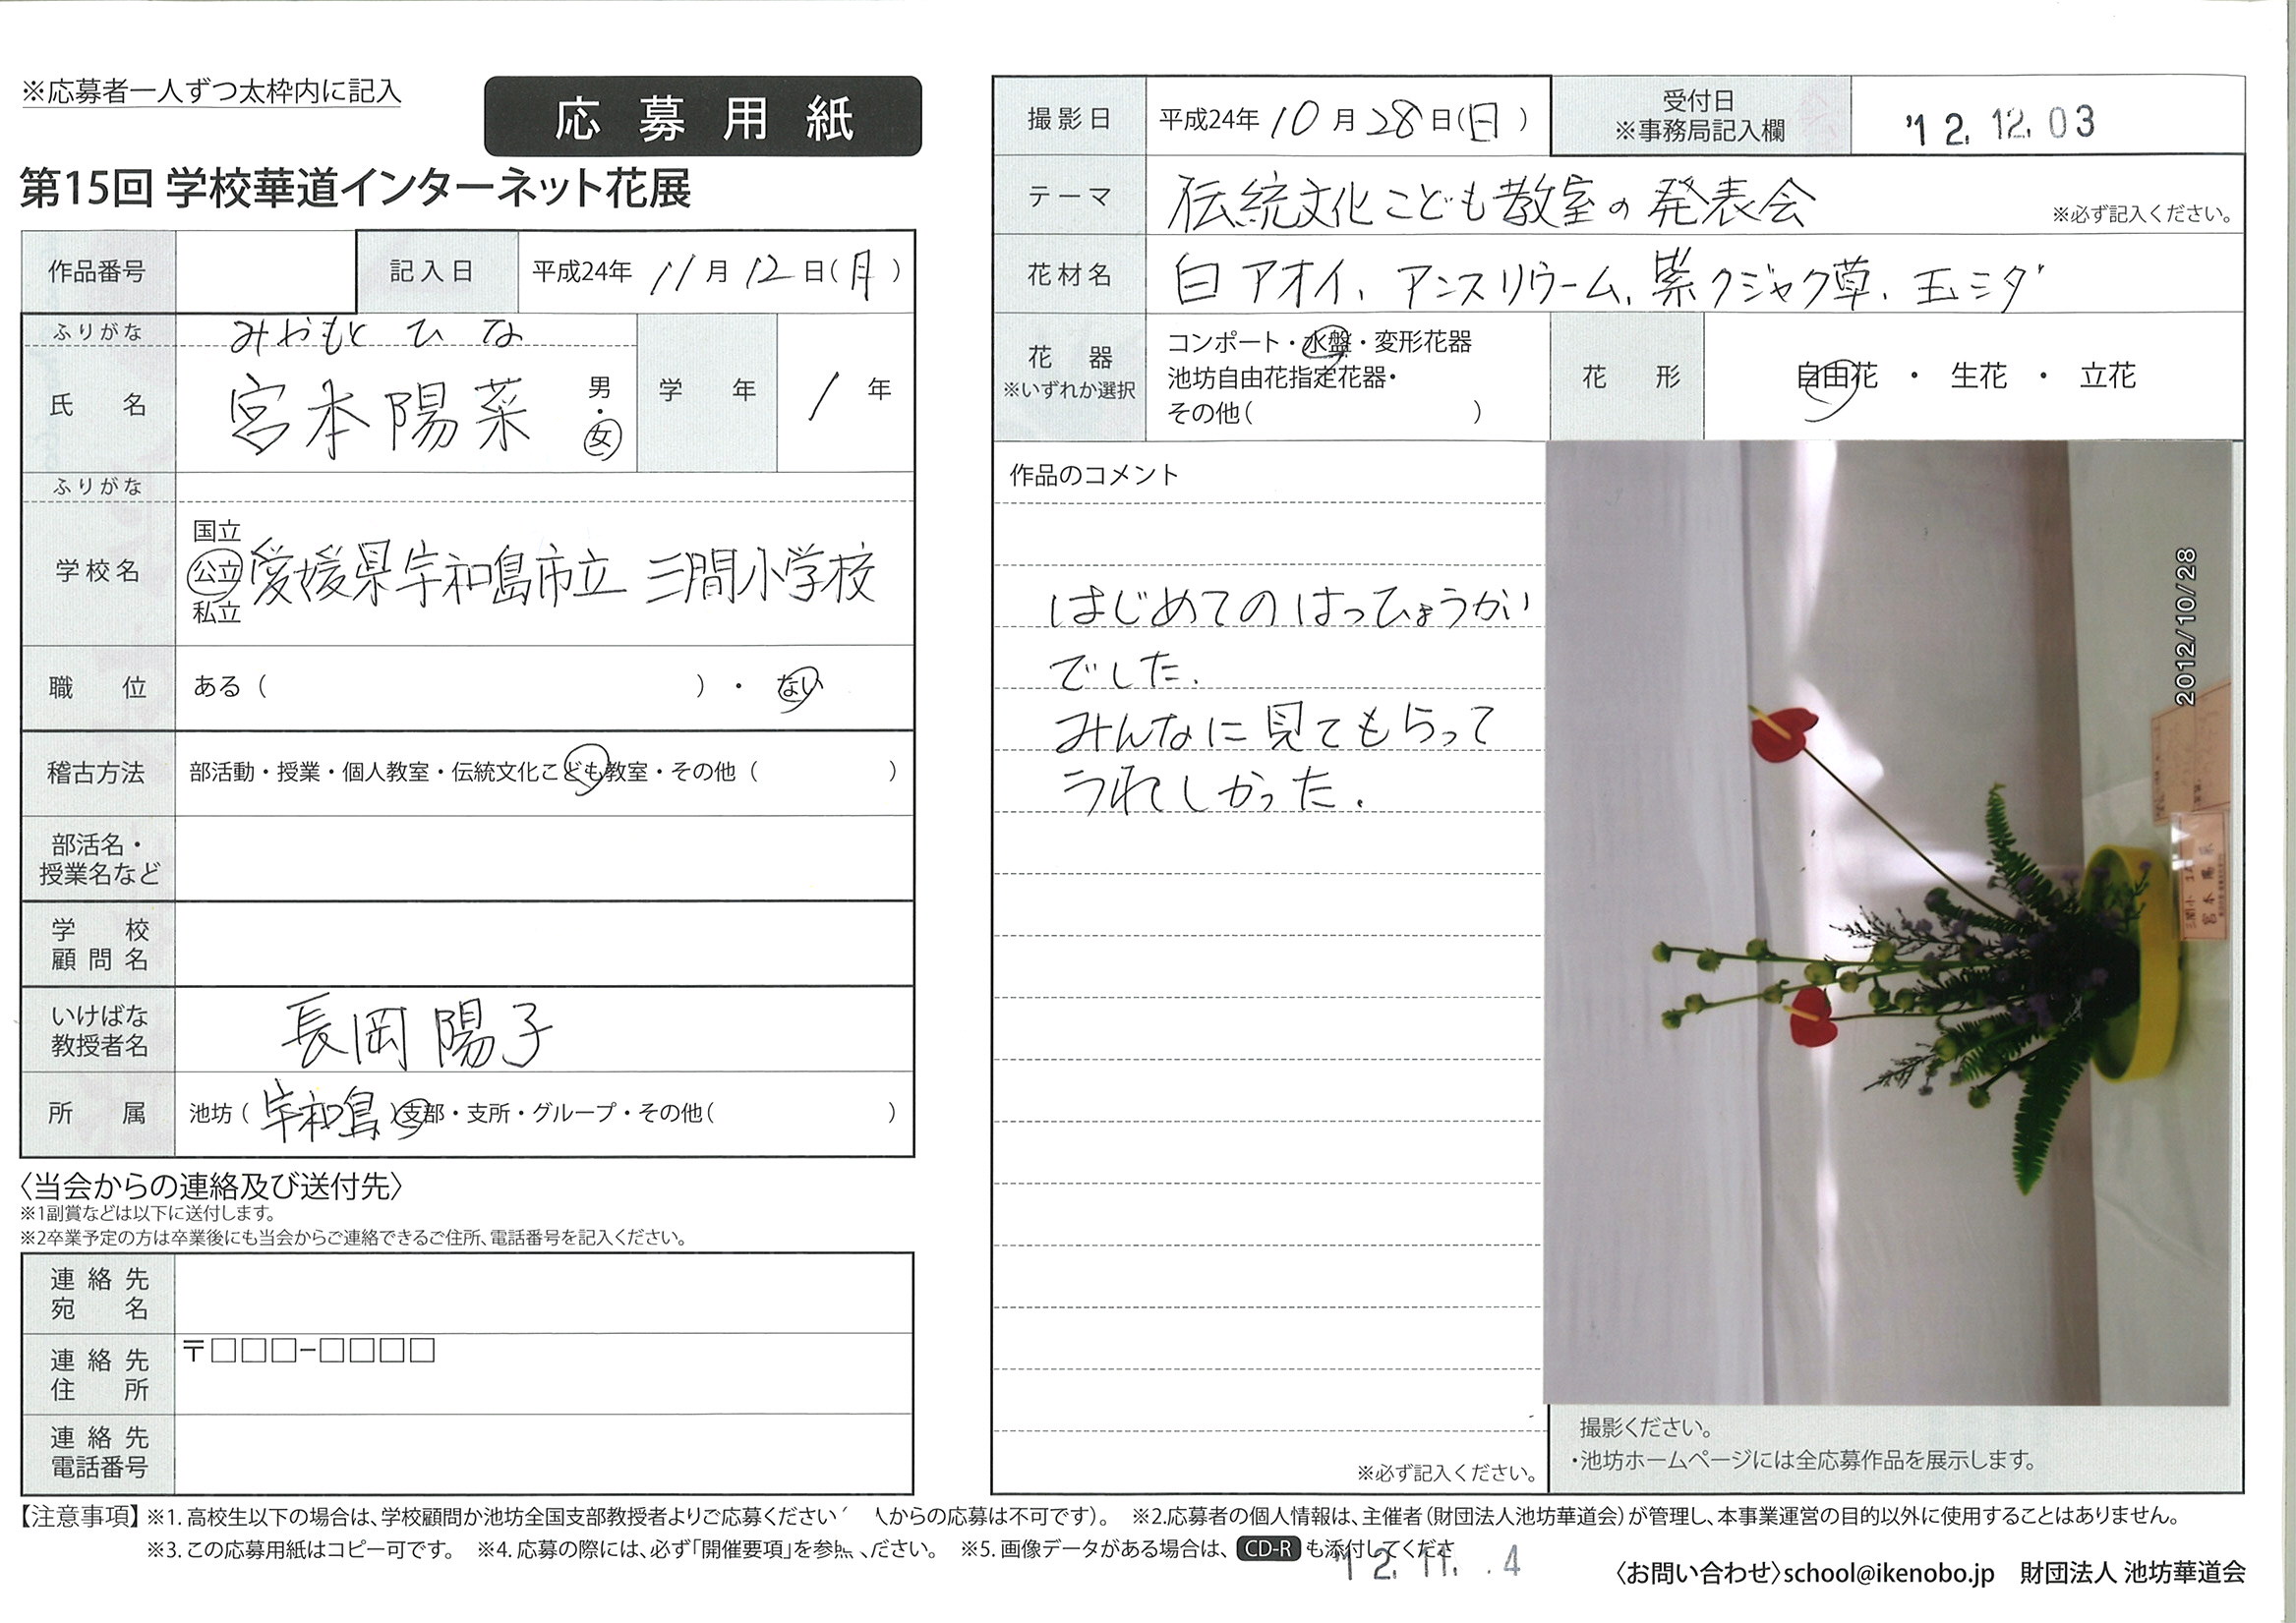 ※応募者一人ずつ太枠内に記入
応募用紙
第15回 学校華道インターネット花展
作品番号
記入日 平成24年 11月 12日(月)
ふりがな みやもと ひな
氏名 宮本陽菜 男・女
学年 1年
ふりがな
学校名 国立 公立 私立 愛媛県宇和島市立 三間小学校
職位 ある( )・ない
稽古方法 部活動・授業・個人教室・伝統文化こども教室・その他( )
部活名・
授業名など
学校
顧問名
いけばな
教授者名 長岡陽子
所属 池坊(宇和島)支部・支所・グループ・その他( )
〈当会からの連絡及び送付先〉
※1副賞などは以下に送付します。
※2卒業予定の方は卒業後にも当会からご連絡できるご住所、電話番号を記入ください。
連絡先
宛名
連絡先
住所 〒□□□-□□□□
連絡先
電話番号
撮影日 平成24年 10月 28日(日)
受付日
※事務局記入欄 '12.12.03
テーマ 伝統文化こども教室の発表会 ※必ず記入ください。
花材名 白アオイ、アンスリウーム、紫クジャク草、玉ミダ
花器
※いずれか選択
コンポート・水盤・変形花器
池坊自由花指定花器・
その他( )
花形 自由花・生花・立花
作品のコメント
はじめてのはっぴょうかい
でした.
みんなに見てもらって
うれしかった.
※必ず記入ください。
2012/10/28
三間小
宮本陽菜
撮影ください。
・池坊ホームページには全応募作品を展示します。
【注意事項】※1.高校生以下の場合は、学校顧問か池坊全国支部教授者よりご応募ください 人からの応募は不可です)。 ※2.応募者の個人情報は、主催者(財団法人池坊華道会)が管理し、本事業運営の目的以外に使用することはありません。
※3.この応募用紙はコピー可です。 ※4.応募の際には、必ず「開催要項」を参照ください。 ※5.画像データがある場合は、CD-Rも添付してくださ
'12.11. .4
〈お問い合わせ〉school@ikenobo.jp 財団法人 池坊華道会